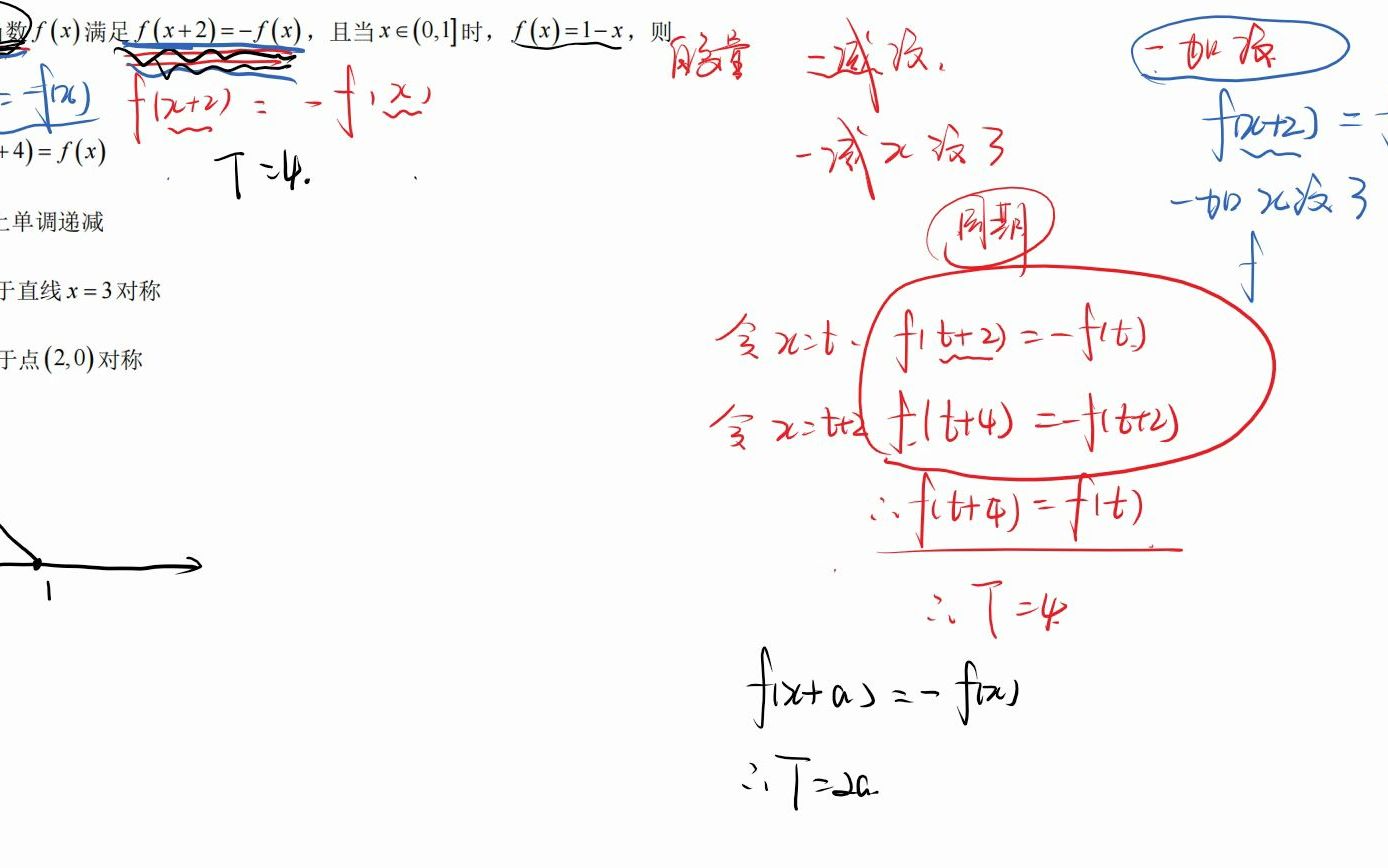 数f(x)满足f(x+2)=-f(x)，且当x∈(0,1]时，f(x)=1-x，则
=-f(x) f(x+2)=-f(x)
+4)=f(x)
T=4.
上单调递减
于直线x=3对称
于点(2,0)对称
1
自变量 一减没.
一减x没了
周期
令x=t. f(t+2)=-f(t)
令x=t+2 f(t+4)=-f(t+2)
∴f(t+4)=f(t)
∴T=4
f(x+a)=-f(x)
∴T=2a
一加没
f(x+2)=
一加x没了
f